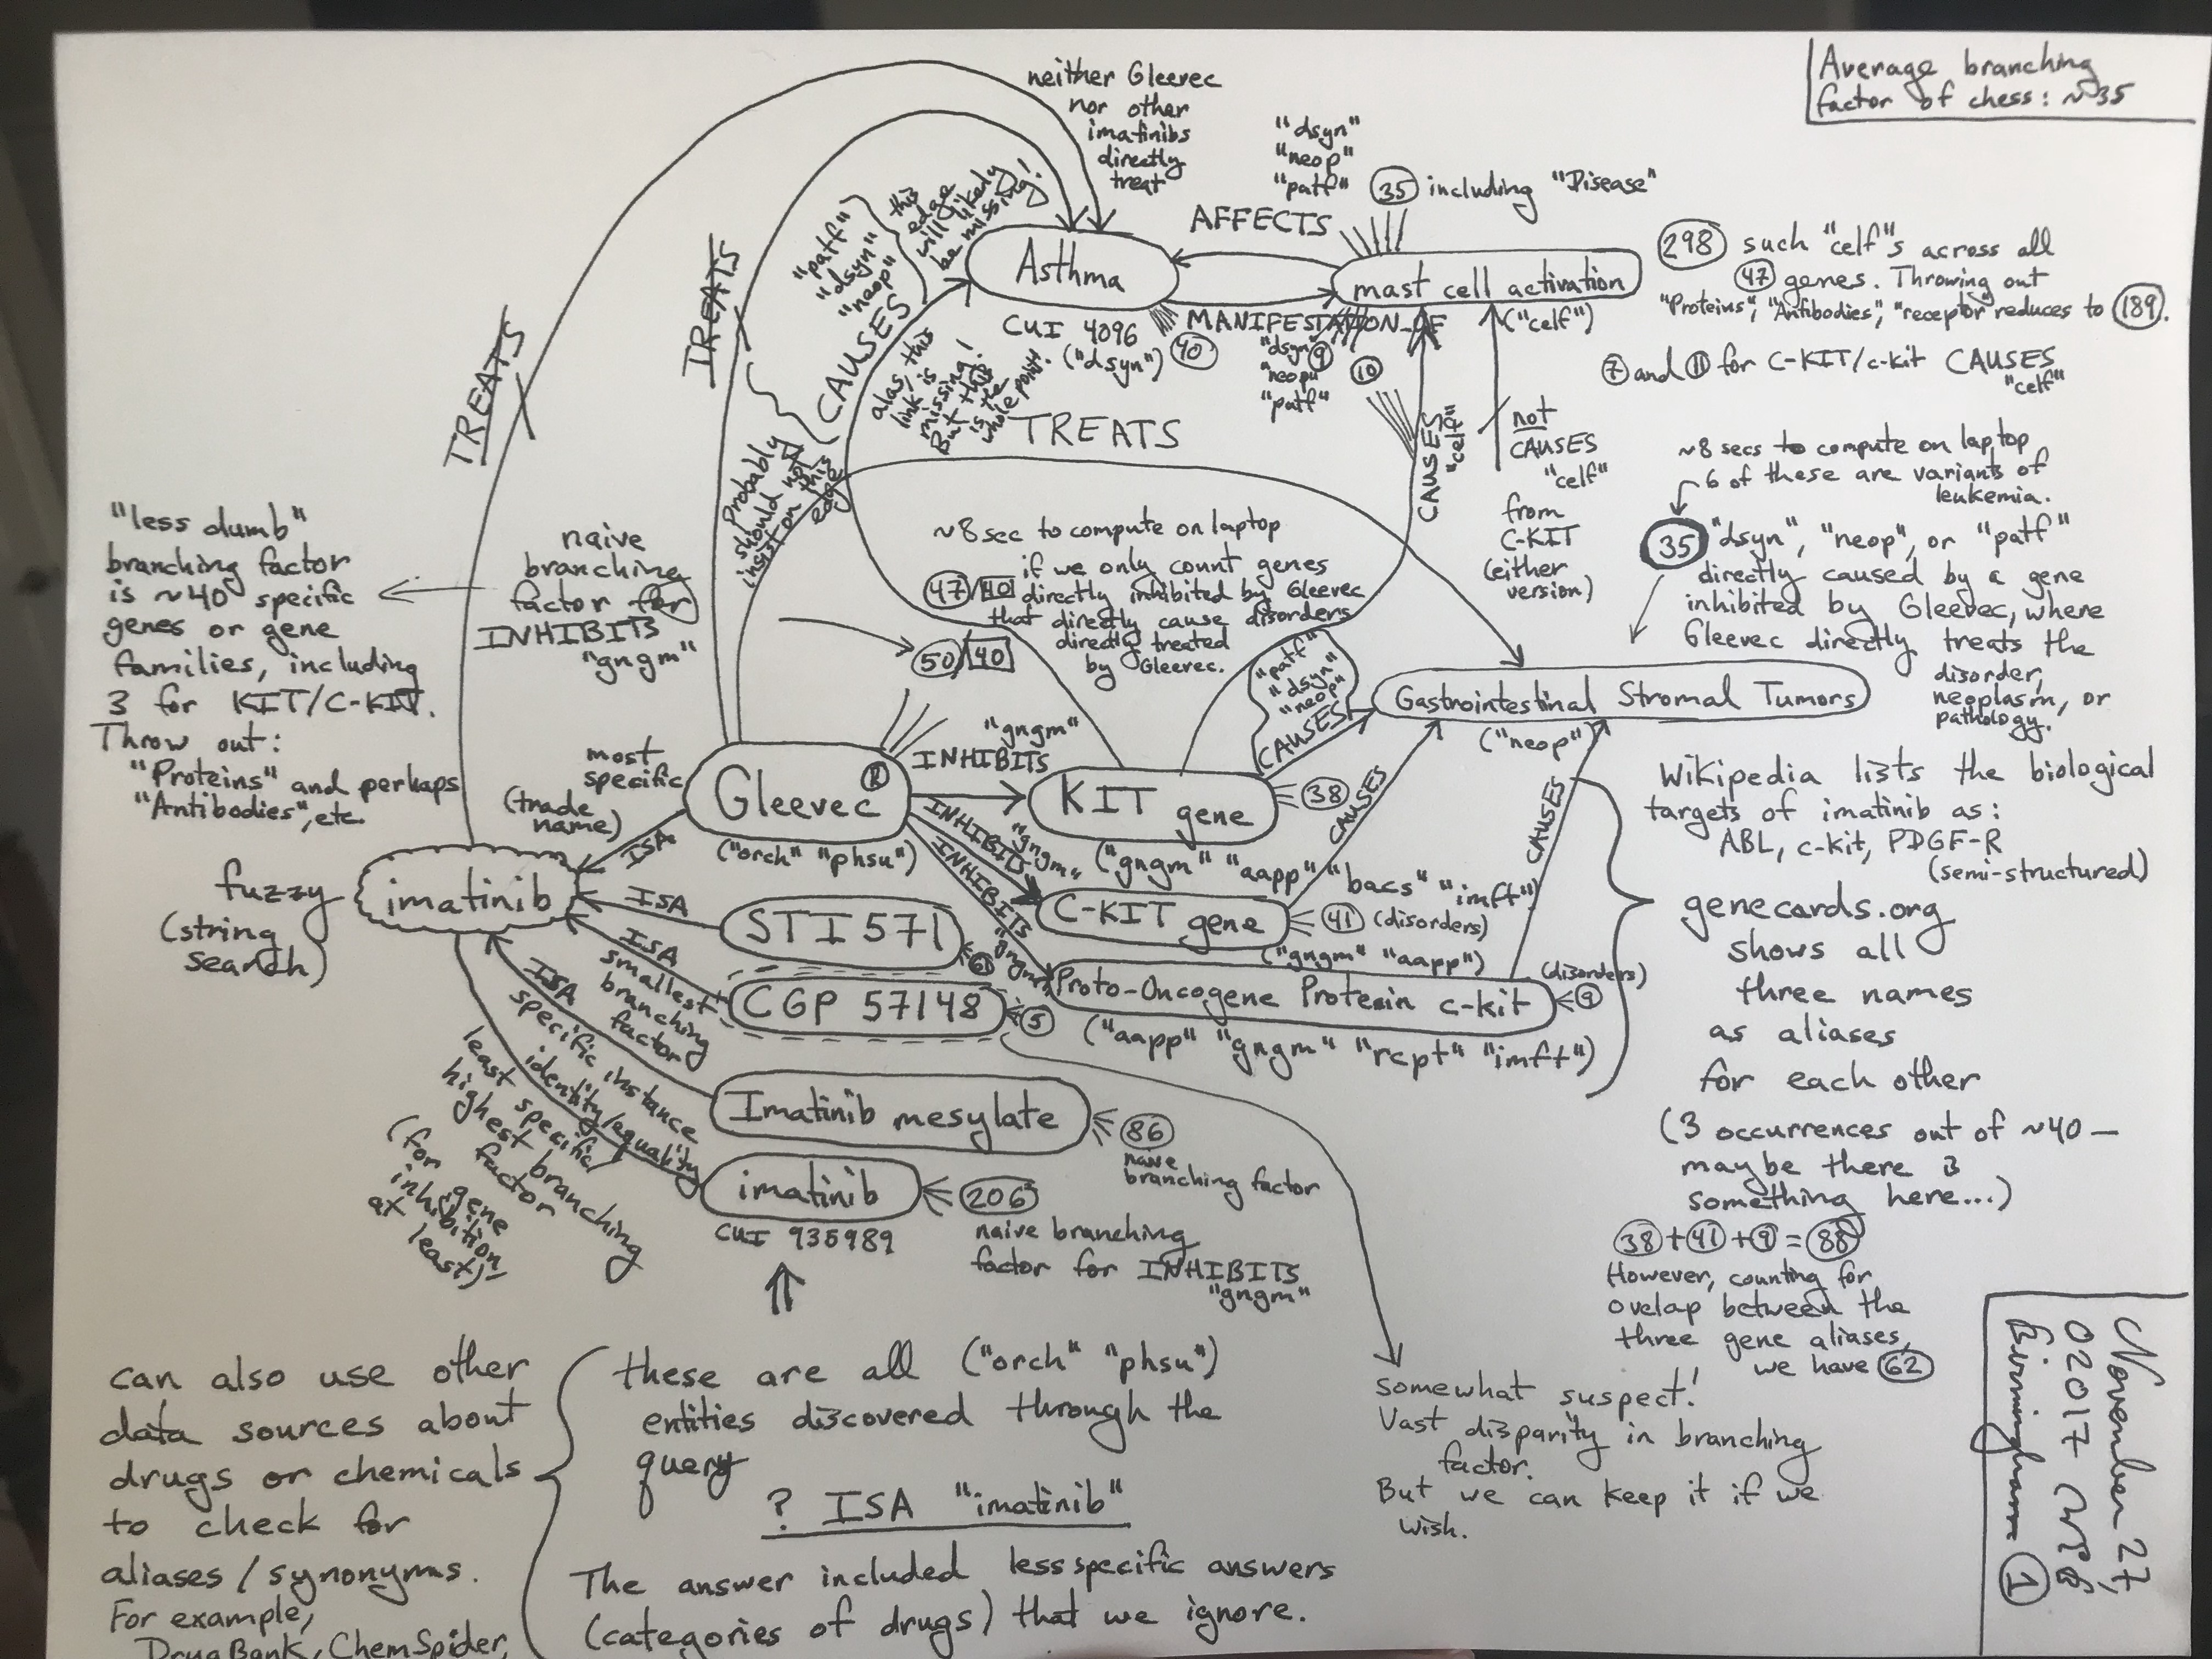 Average branching
factor of chess: ~35
neither Gleevec
nor other
imatinibs
directly
treat
"dsyn"
"neop"
"patf"
35 including "Disease"
AFFECTS
Asthma
CUI 4096
("dsyn")
40
mast cell activation
("celf")
MANIFESTATION_OF
"dsyn" 9
"neop"
"patf"
10
298 such "celf"s across all
47 genes. Throwing out
"Proteins", "Antibodies", "receptor" reduces to 189.
7 and 11 for C-KIT/c-kit CAUSES
"celf"
TREATS
TREATS
"patf"
"dsyn"
"neop"
this
edge
will likely
be missing!
CAUSES
alas, this
link is
missing!
But this
is the
whole point.
TREATS
Probably
should not
insist on this
edge
CAUSES
"celf"
not
CAUSES
"celf"
from
C-KIT
(either
version)
~8 secs to compute on laptop
6 of these are variants of
leukemia.
35 "dsyn", "neop", or "patf"
directly caused by a gene
inhibited by Gleevec, where
Gleevec directly treats the
disorder,
neoplasm, or
pathology.
"less dumb"
branching factor
is ~40 specific
genes or gene
families, including
3 for KIT/C-KIT.
Throw out:
"Proteins" and perhaps
"Antibodies", etc.
naive
branching
factor for
INHIBITS
"gngm"
50/40
~8 sec to compute on laptop
if we only count genes
47/40 directly inhibited by Gleevec
that directly cause disorders
directly treated
by Gleevec.
"patf"
"dsyn"
"neop"
CAUSES
Gastrointestinal Stromal Tumors
("neop")
most
specific
(trade
name)
Gleevec ®
("orch" "phsu")
INHIBITS
"gngm"
KIT gene
38
("gngm" "aapp" "bacs" "imft")
INHIBITS
"gngm"
C-KIT gene
41 (disorders)
("gngm" "aapp")
INHIBITS
"gngm"
Proto-Oncogene Protein c-kit
(disorders)
9
("aapp" "gngm" "rcpt" "imft")
CAUSES
CAUSES
Wikipedia lists the biological
targets of imatinib as:
ABL, c-kit, PDGF-R
(semi-structured)
genecards.org
shows all
three names
as aliases
for each other
(3 occurrences out of ~40 —
maybe there is
something here...)
38 + 41 + 9 = 88
However, counting for
ovelap between the
three gene aliases,
we have 62
fuzzy
(string
search)
imatinib
ISA
ISA
STI 571
61
ISA
smallest
branching
factor
CGP 57148
5
ISA
specific instance
identity/equality
Imatinib mesylate
86
naive
branching factor
least specific/
highest branching
factor
(for gene
inhibition
at least)
imatinib
CUI 935989
206
naive branching
factor for INHIBITS
"gngm"
somewhat suspect!
Vast disparity in branching
factor.
But we can keep it if we
wish.
can also use other
data sources about
drugs or chemicals
to check for
aliases / synonyms.
For example,
DrugBank, ChemSpider,
these are all ("orch" "phsu")
entities discovered through the
query
? ISA "imatinib"
The answer included less specific answers
(categories of drugs) that we ignore.
November 27,
02017
Birmingham
1